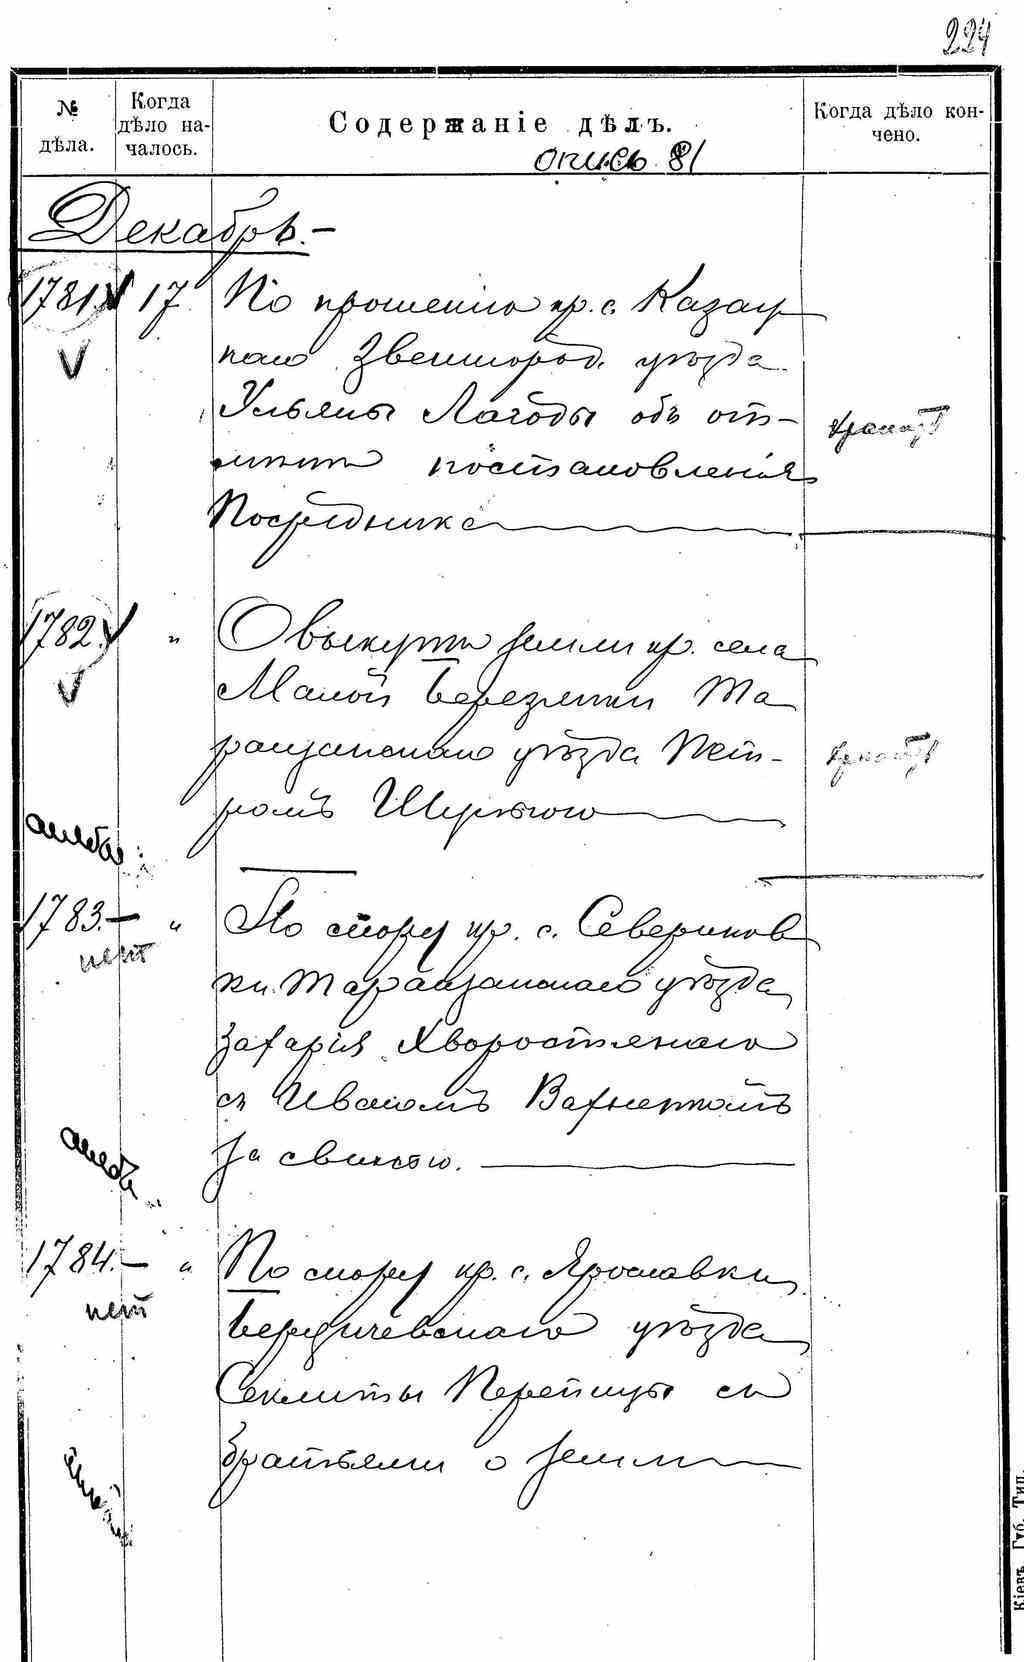 224
№ дѣла.
Когда дѣло началось.
Содержаніе дѣлъ.
Когда дѣло кончено.
опись 81
Декабрь.–
1781. 17. По прошенію кр. с. Казац
каго Звенигород. уѣзда
Ульяны Лагоды объ от-
мѣнѣ постановленія
Посредника
1782. " О выкупѣ земли кр. села
Малой Березянки Та
ращанскаго уѣзда Пет-
ромъ
1783.– " По спору кр. с. Севериновки
ки Таращанскаго уѣзда
Захарія Хворостянаго
съ Иваномъ
за свинью.
нет
1784.– " По спору кр. с. Ярославки
Бердичевскаго уѣзда
Секлиты Перепицы съ
братьями о землѣ
нет
Кіевъ. Губ. Тип.